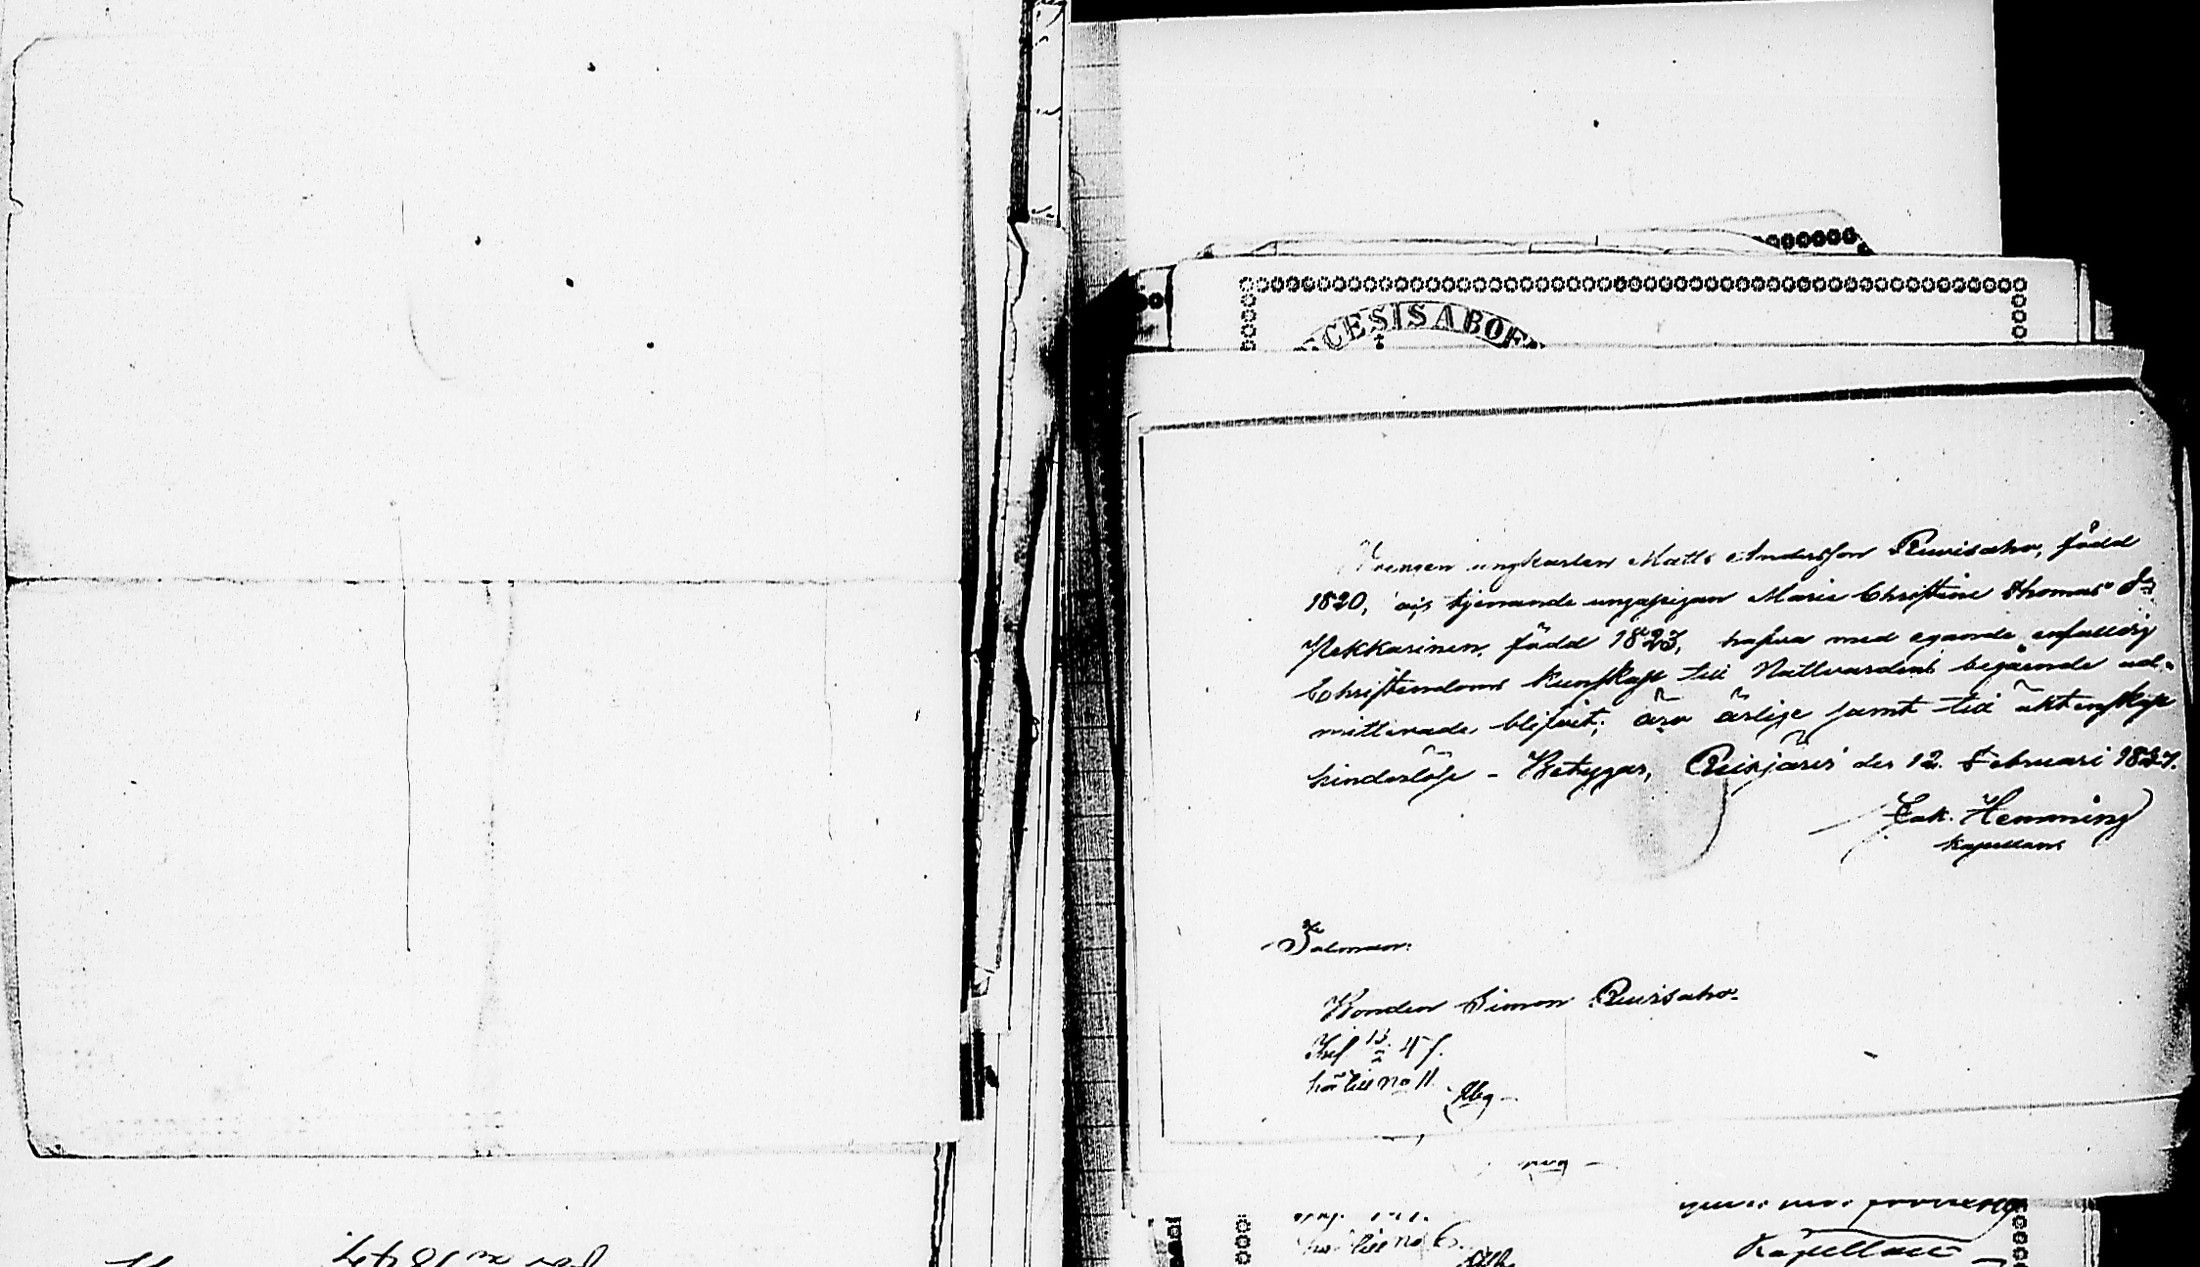 CESIS ABOE
Drengen ungkarlen Matts Andersson Ruuisaho, född
1820, och tjenande ungapigan Maria Christina Thomas Dr
Pekkarinen, född 1823, hafva med egande enfaldig
Christendoms kunskap till Nattvardens begående ad-
mitterade blifvit; äro ärlige samt till äktenskap
hinderlöse - Betygar, Reisjärvi den 12. Februari 1847.
Jak. Hemming
Kapellan
Bonden Simon Ruuisaho.
47.
hör till no 11.
hör till no 6.
Kapellan
1847